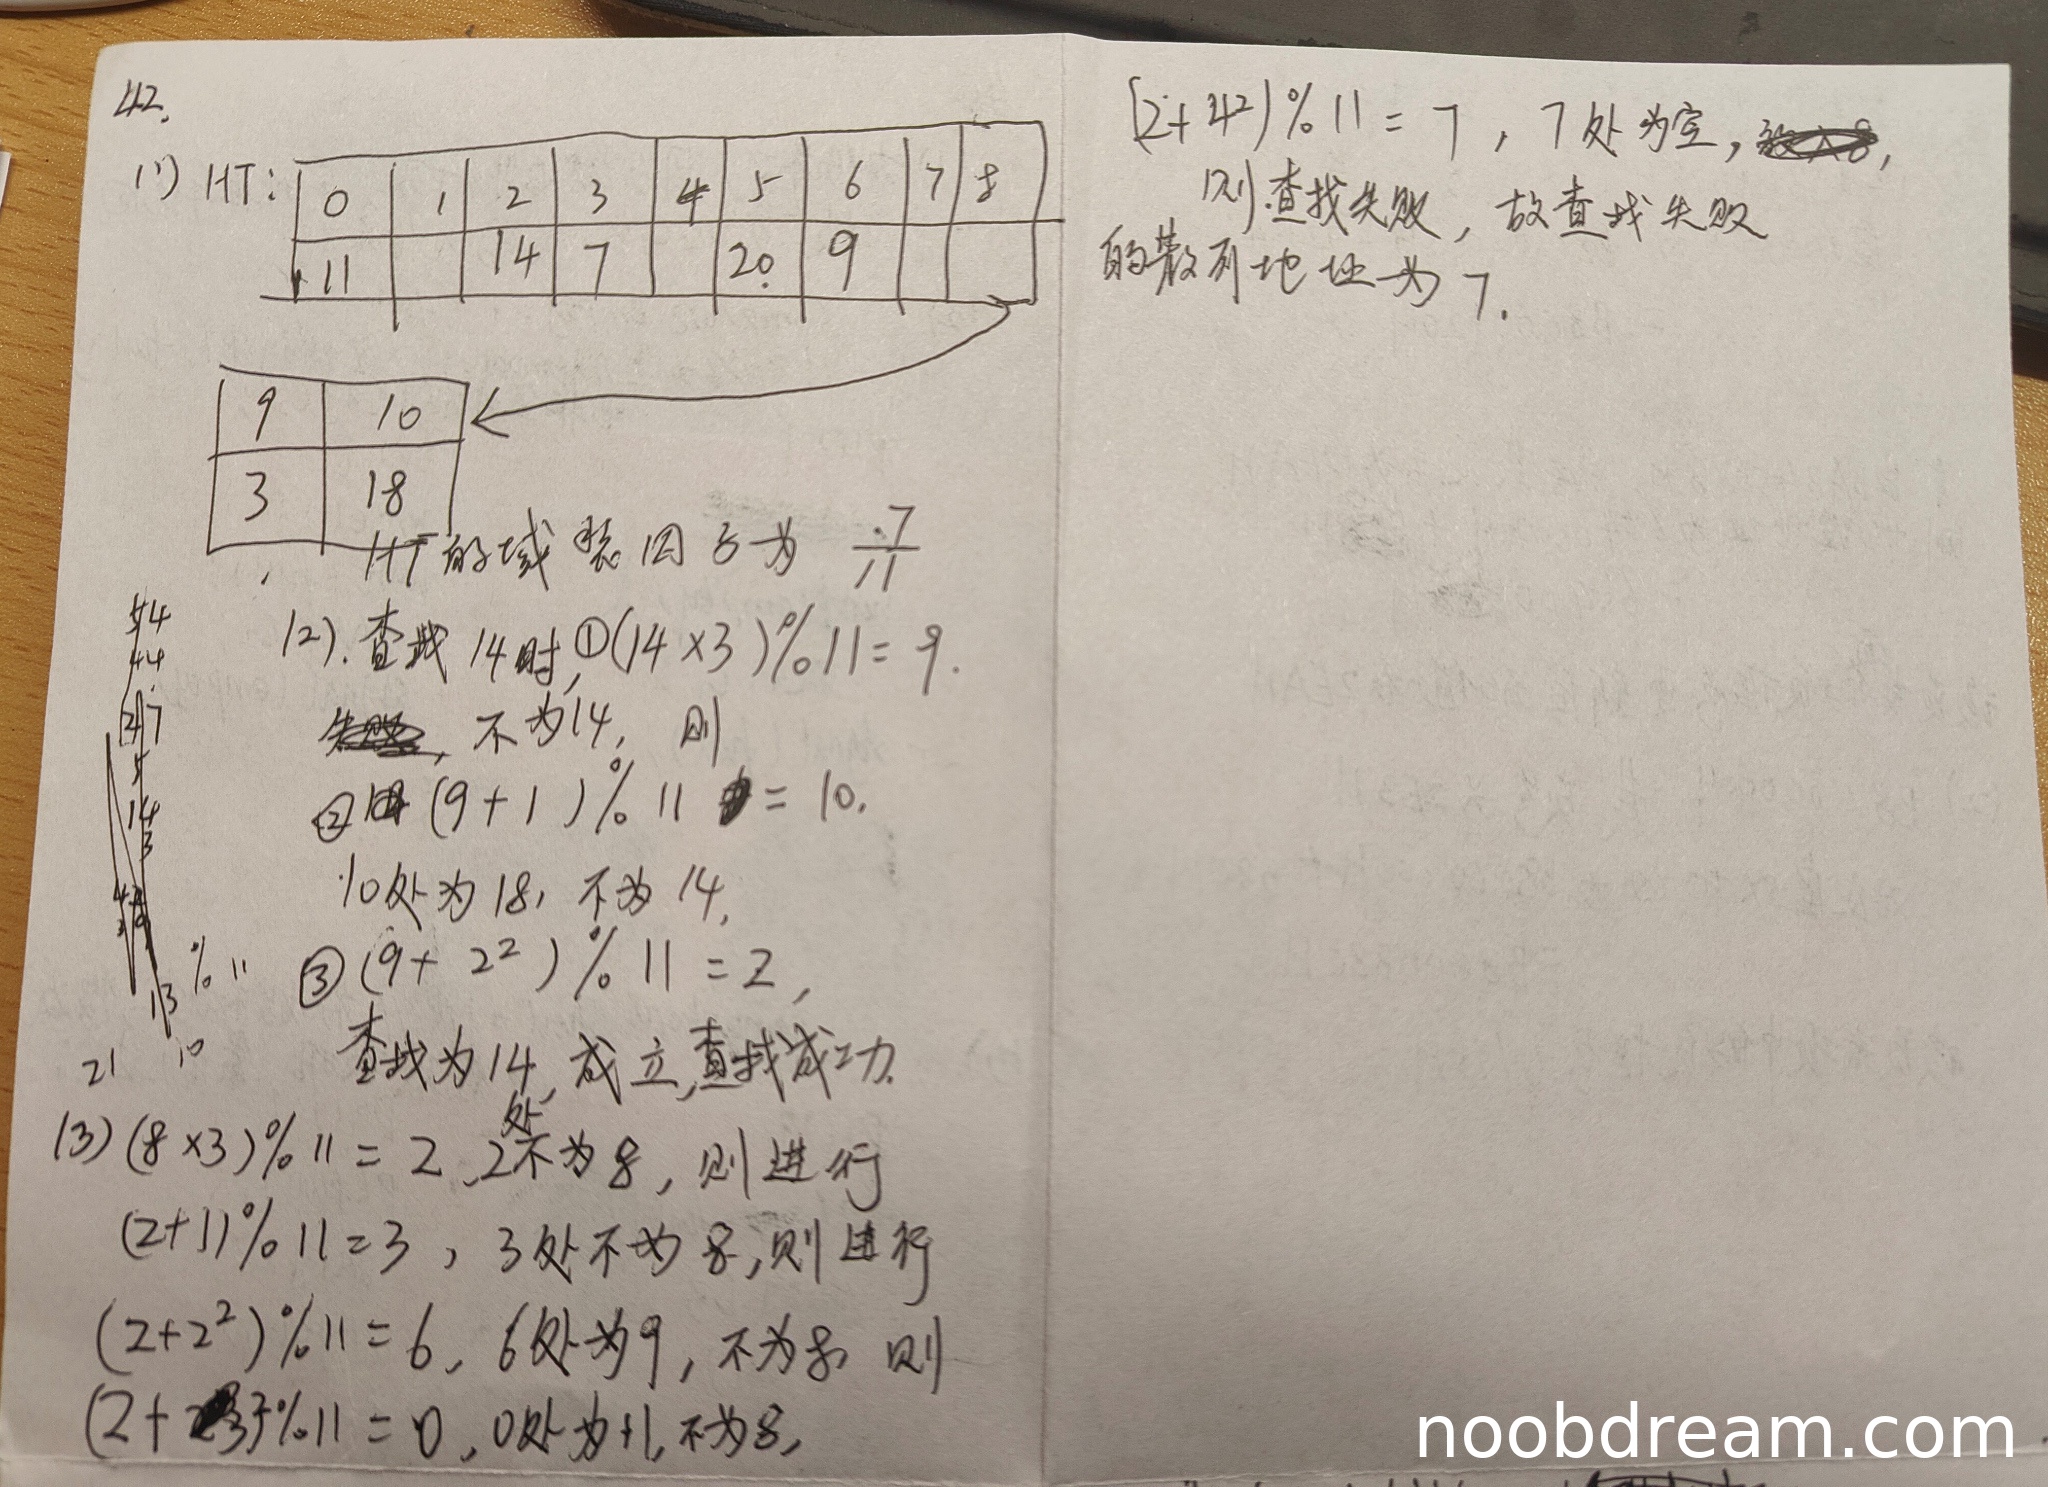 42.
(1) HT:
0 1 2 3 4 5 6 7 8
11 14 7 20 9
9 10
3 18
HT的域装因子为 7/11
(2). 查找14时, ①(14×3)%11=9.
不为14, 则
② (9+1)%11 = 10.
10处为18, 不为14,
③ (9+2²)%11=2,
查找为14, 成立, 查找成功.
54
44
5
14
3
13 % 11
21 10
(3) (8×3)%11=2, 2处不为8, 则进行
(2+1)%11=3, 3处不为8, 则进行
(2+2²)%11=6, 6处为9, 不为8, 则
(2+3²)%11=0, 0处为11, 不为8,
(2+4²)%11=7, 7处为空,
则查找失败, 故查找失败
的散列地址为7.
noobdream.com